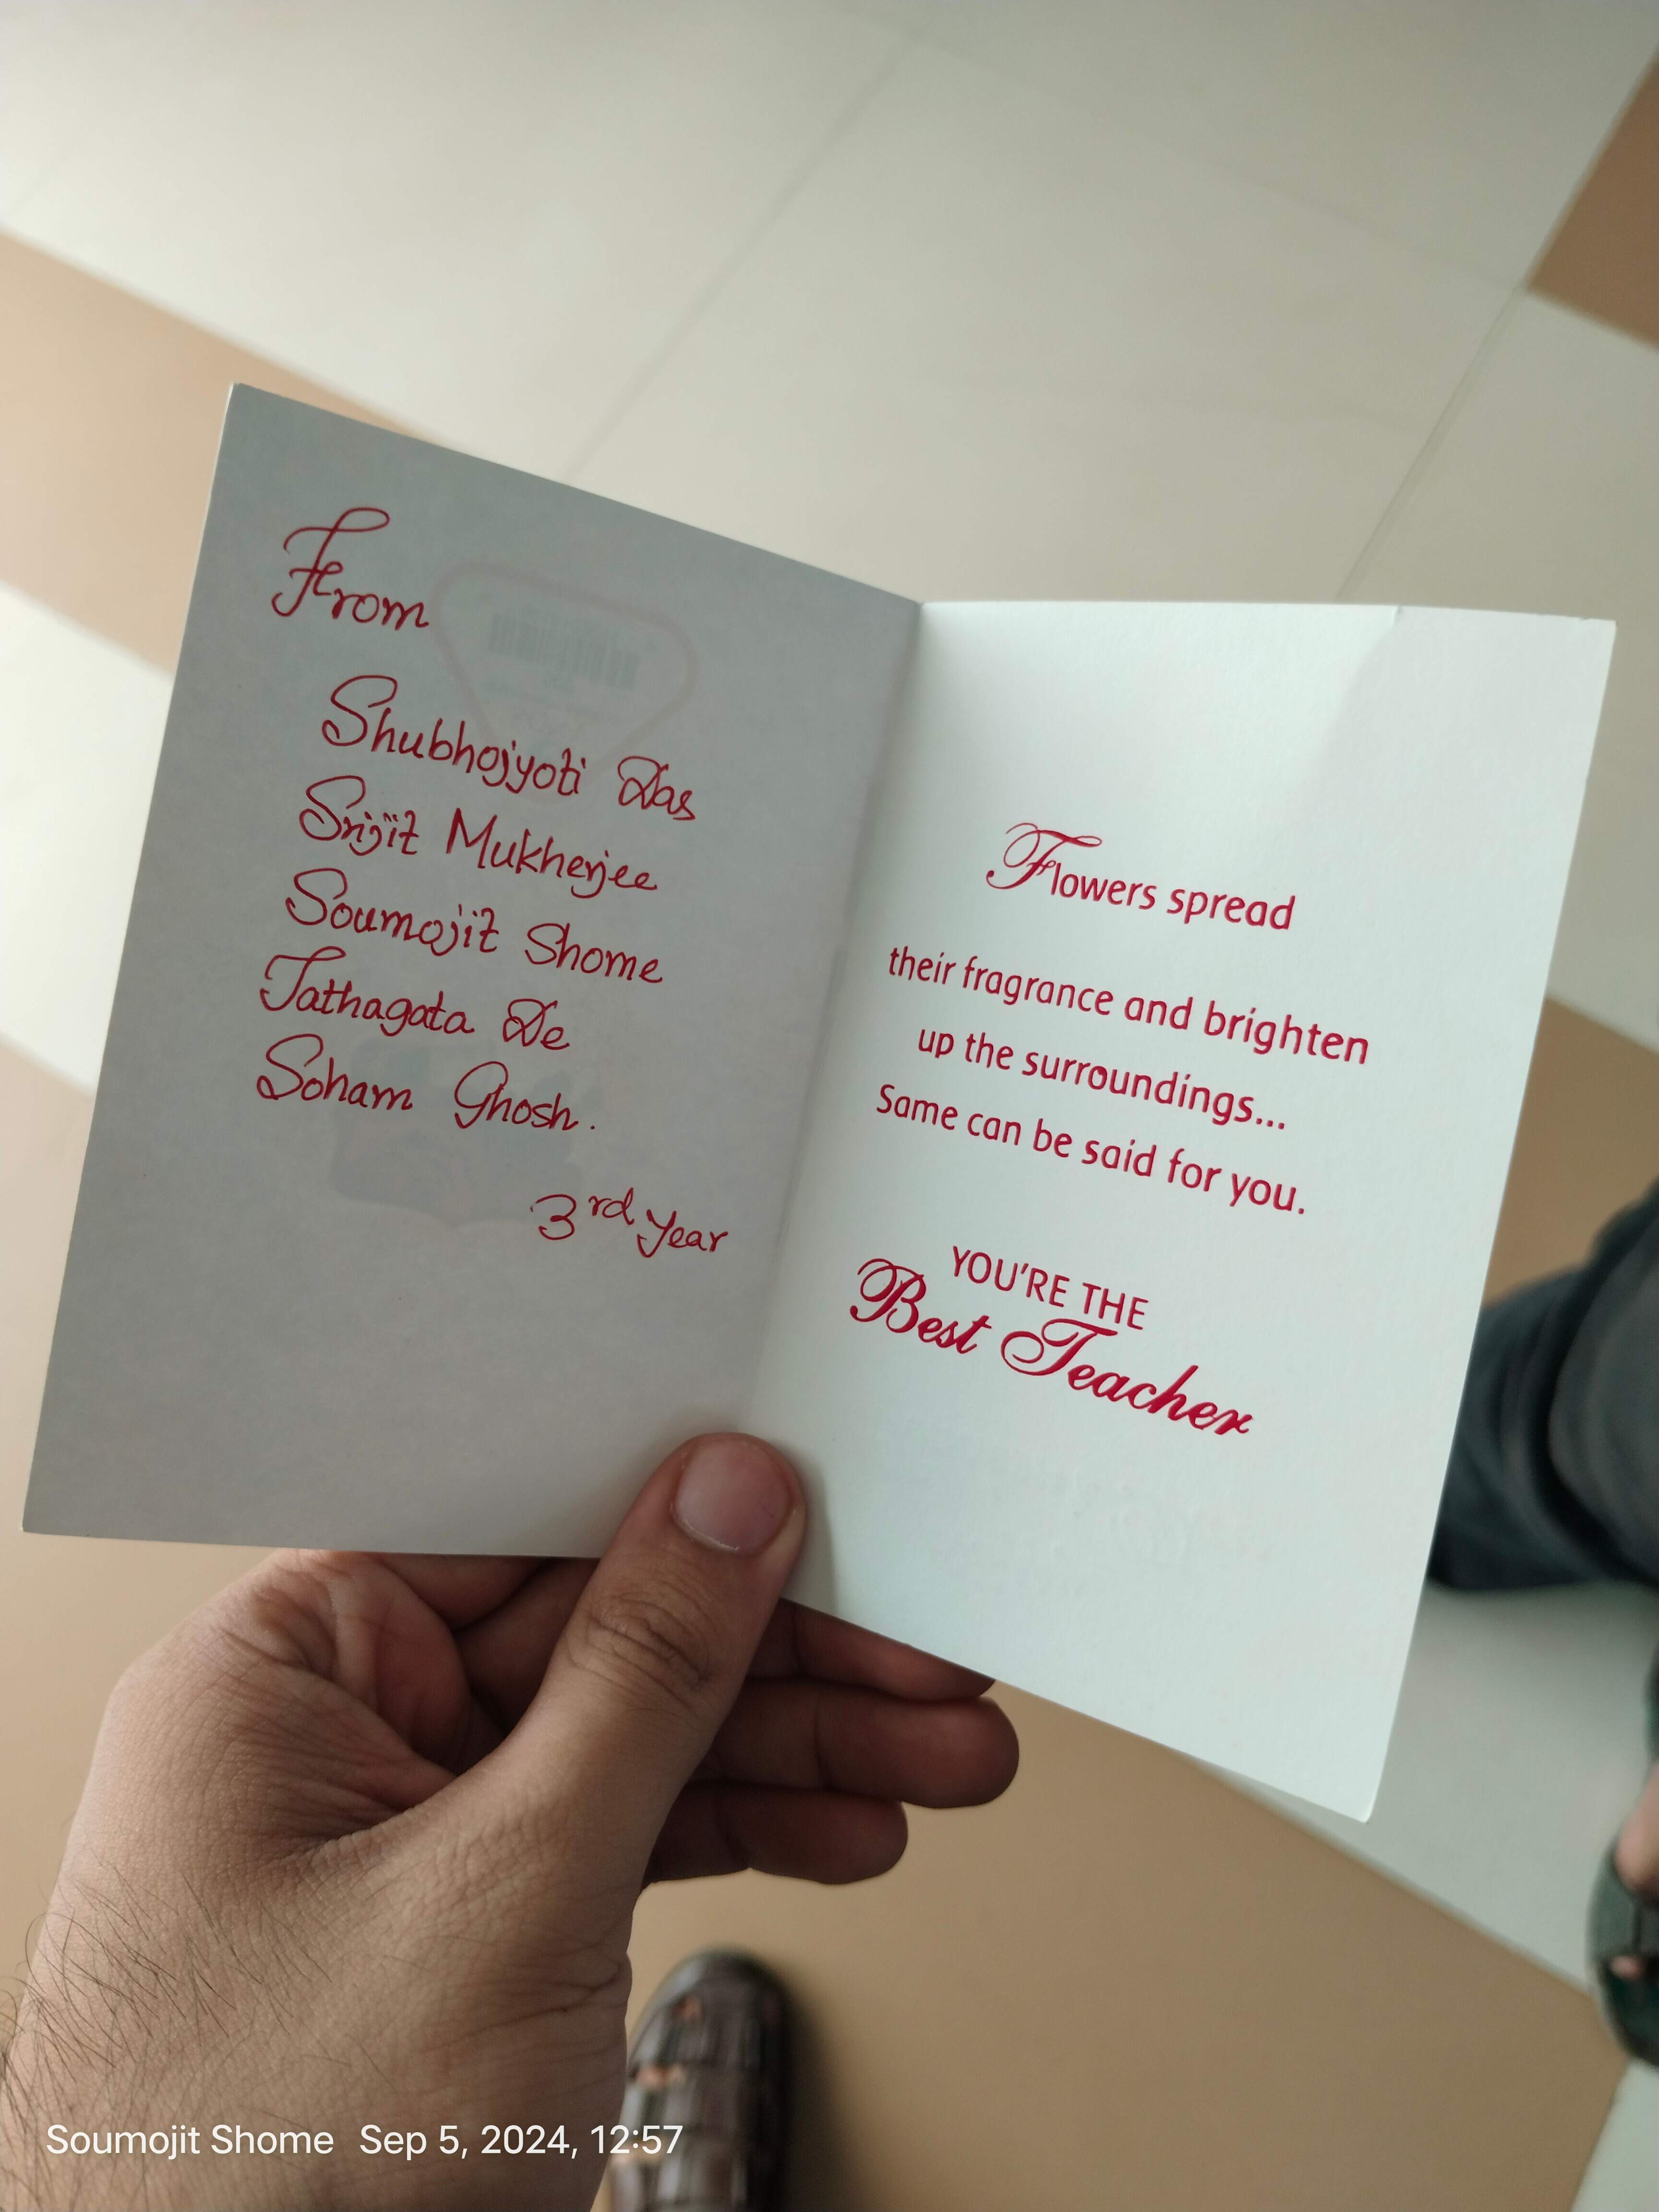 From
Shubhojyoti Das
Srijit Mukherjee
Soumojit Shome
Tathagata De
Soham Ghosh.
3rd year
Flowers spread
their fragrance and brighten
up the surroundings...
Same can be said for you.
YOU'RE THE
Best Teacher
Soumojit Shome Sep 5, 2024, 12:57